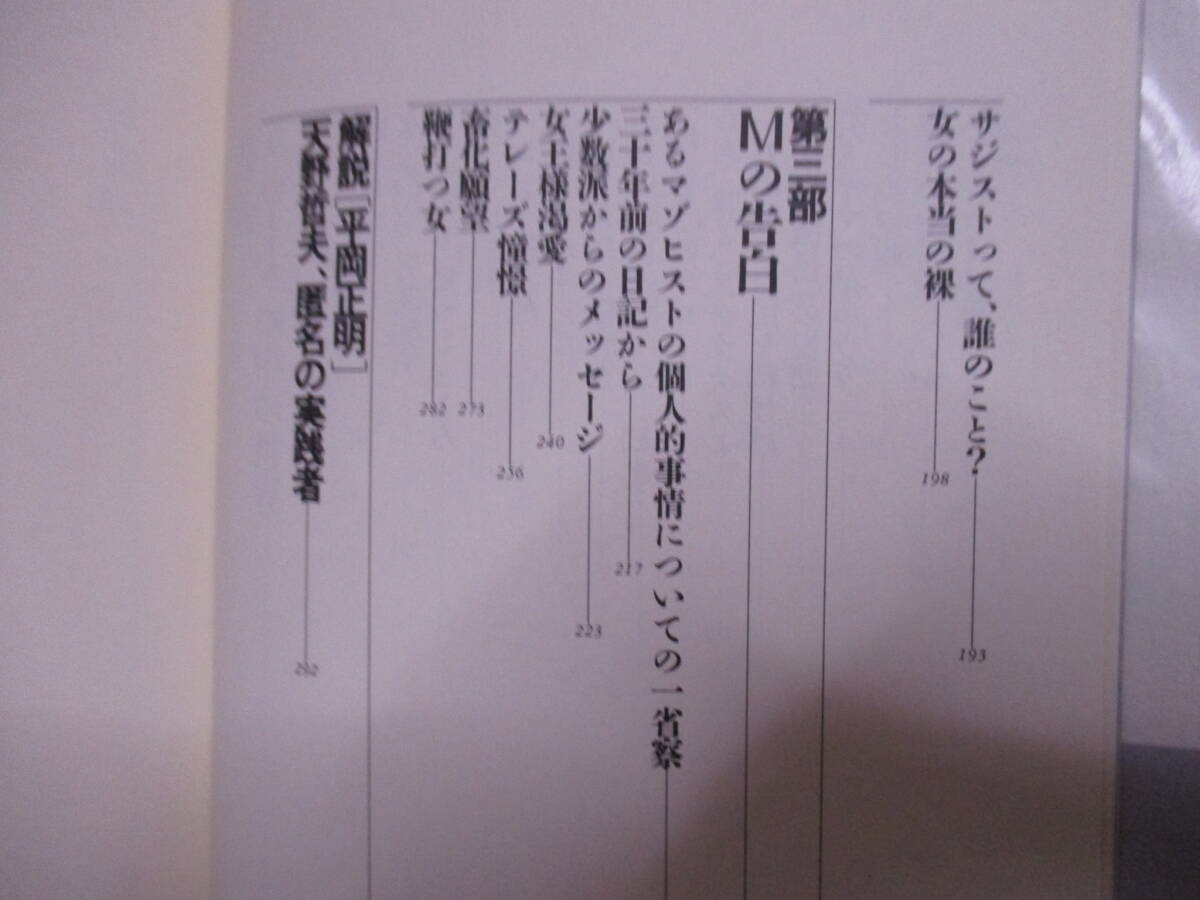 サジストって、誰のこと?
193
女の本当の裸
198
第三部
Mの告白
あるマゾヒストの個人的事情についての一省察
三十年前の日記から
217
少数派からのメッセージ
223
女王様渇愛
240
テレーズ憧憬
256
畜化願望
273
鞭打つ女
282
解説[平岡正明]
天野哲夫、匿名の実践者
292